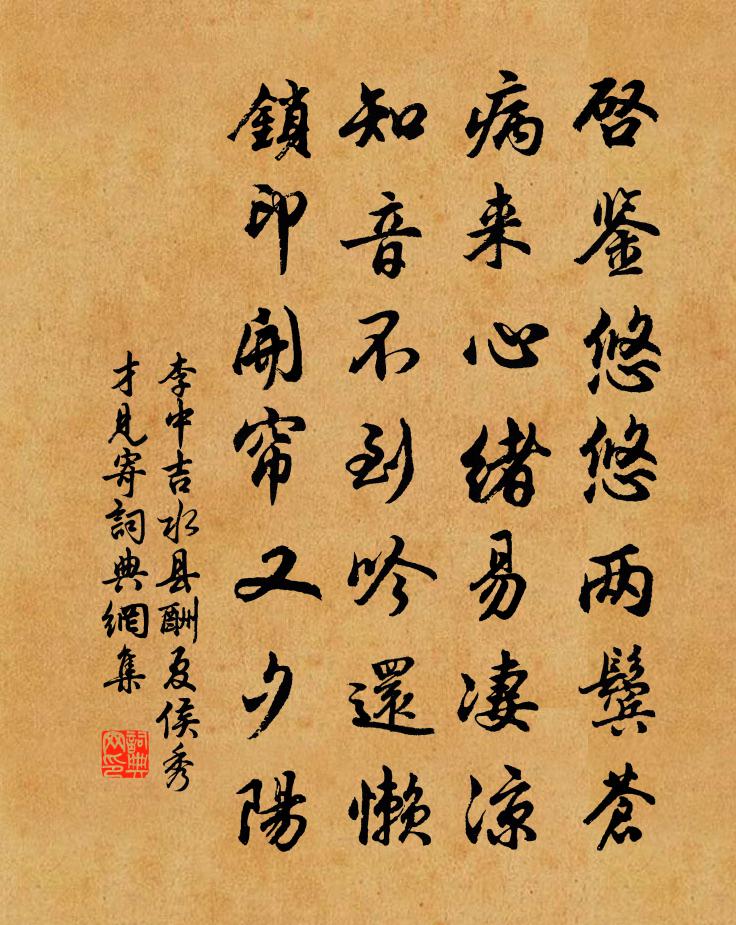 启鉴悠悠两鬓苍
病来心绪易凄凉
知音不到吟還懒
鎖印開帘又夕陽
李中吉水县酬夏侯秀
才見寄詞典網集
詞典网印